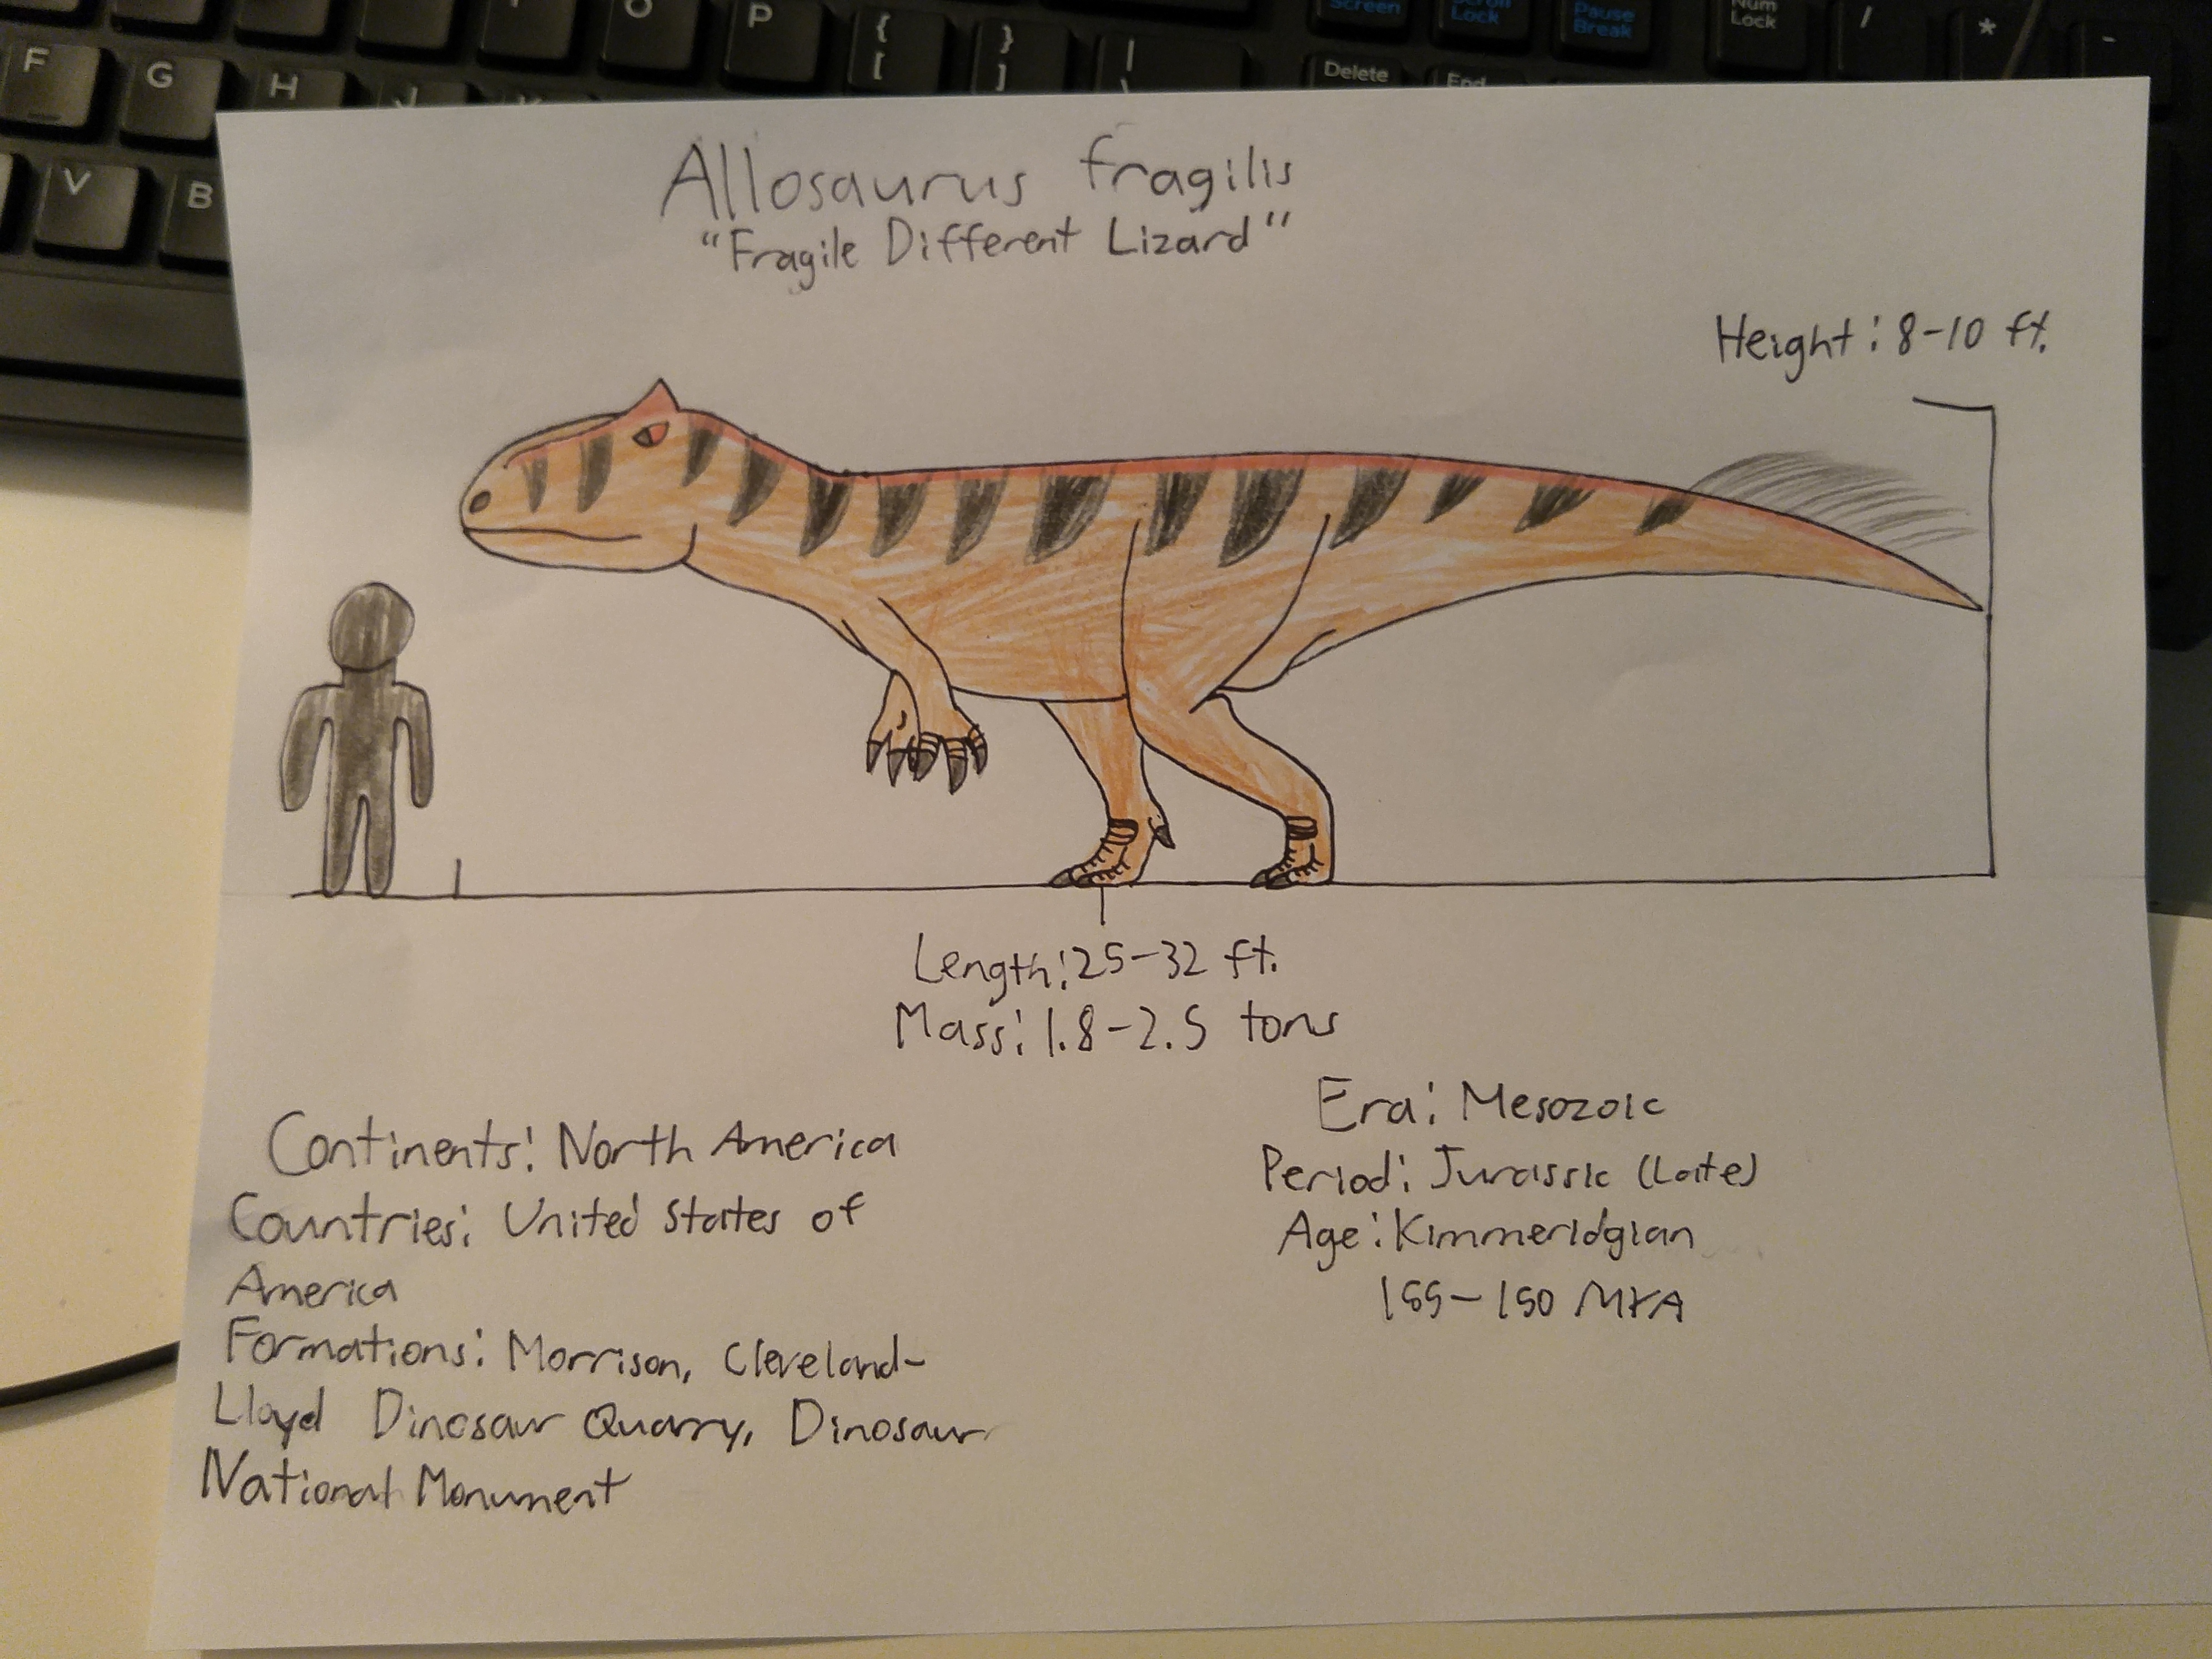 O P { [ } ] | \ Screen Scroll Lock Pause Break Num Lock / * -
F G H J K Delete End
V B
Allosaurus fragilis
"Fragile Different Lizard"
Height: 8-10 ft.
Length: 25-32 ft.
Mass: 1.8-2.5 tons
Continents: North America
Countries: United States of
America
Formations: Morrison, Cleveland-
Lloyd Dinosaur Quarry, Dinosaur
National Monument
Era: Mesozoic
Period: Jurassic (Late)
Age: Kimmeridgian
155-150 MYA